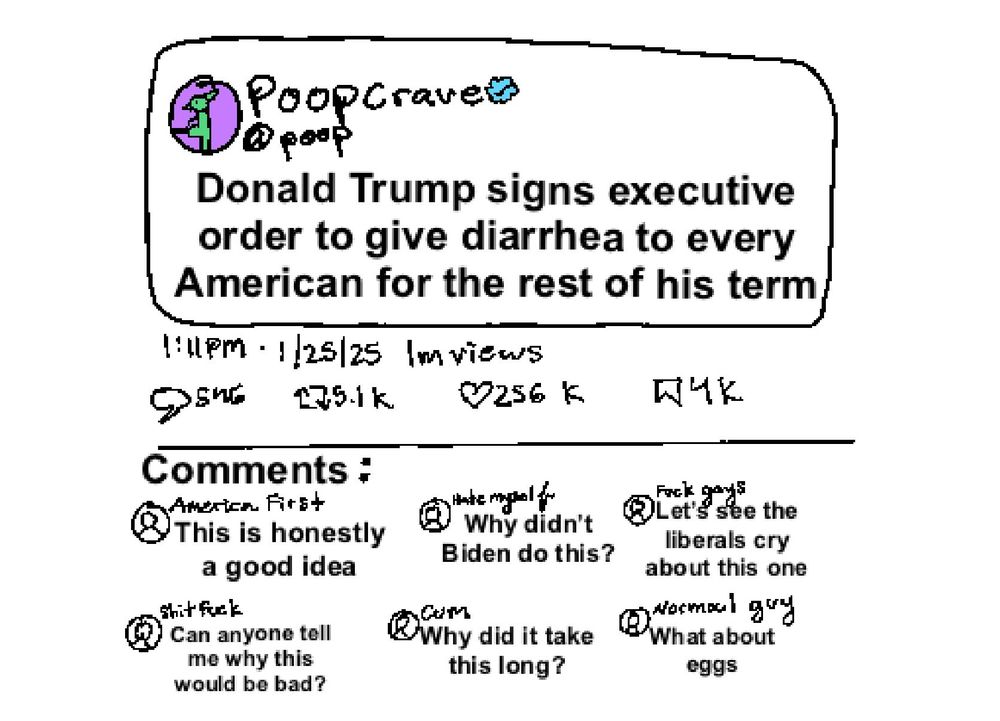 PoopCrave
@poop
Donald Trump signs executive
order to give diarrhea to every
American for the rest of his term
1:11PM · 1/25/25 1m views
546 5.1K 256 K 4K
Comments:
America First
This is honestly
a good idea
Hate myself
Why didn't
Biden do this?
Fuck gays
Let's see the
liberals cry
about this one
Shitfuck
Can anyone tell
me why this
would be bad?
Cum
Why did it take
this long?
Normal guy
What about
eggs